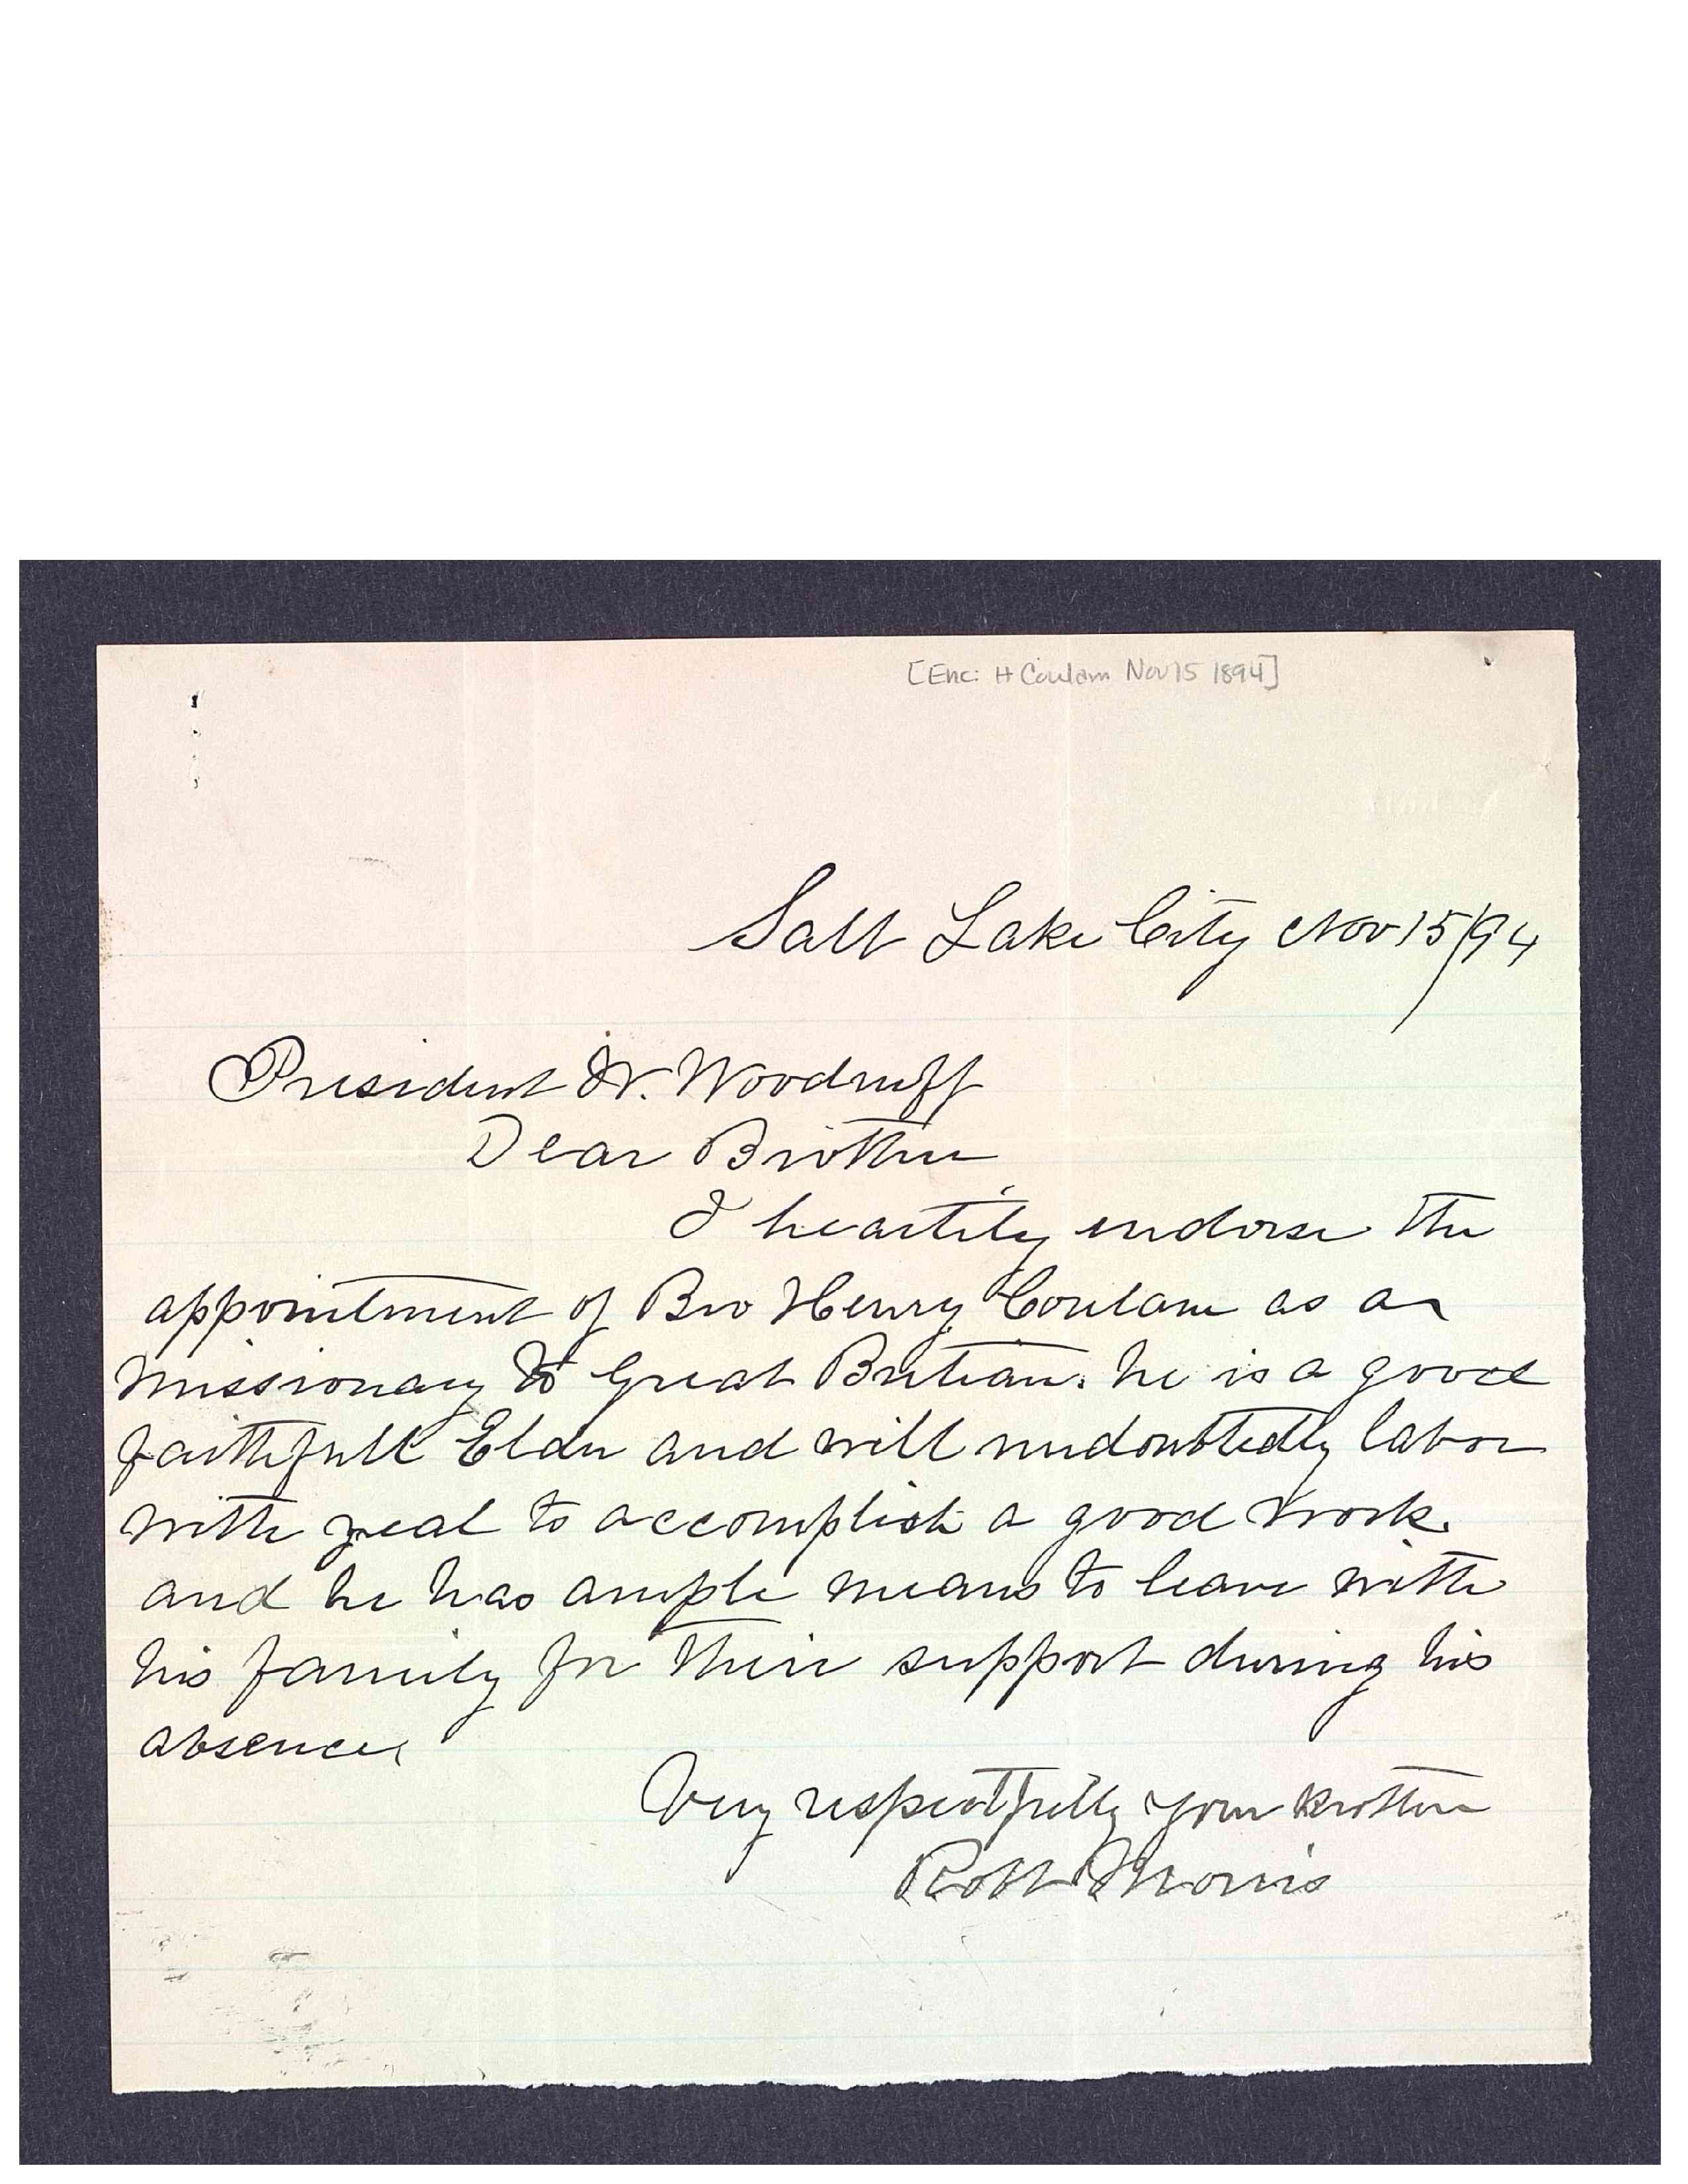 [Enc: H Coulam Nov 15 1894]
Salt Lake City Nov 15/94
President W. Woodruff
Dear Brother
I heartily endorse the
appointment of Bro Henry Coulam as a
missionary to Great Britian. he is a good
faithfull Elder and will undoubtedly labor
with zeal to accomplish a good work.
and he has ample means to leave with
his family for their support during his
absence,
Very respectfully your Brother
Robt Morris